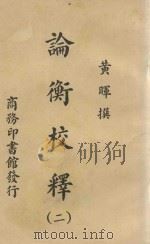 黃暉撰
論衡校釋
(二)
商務印書館發行